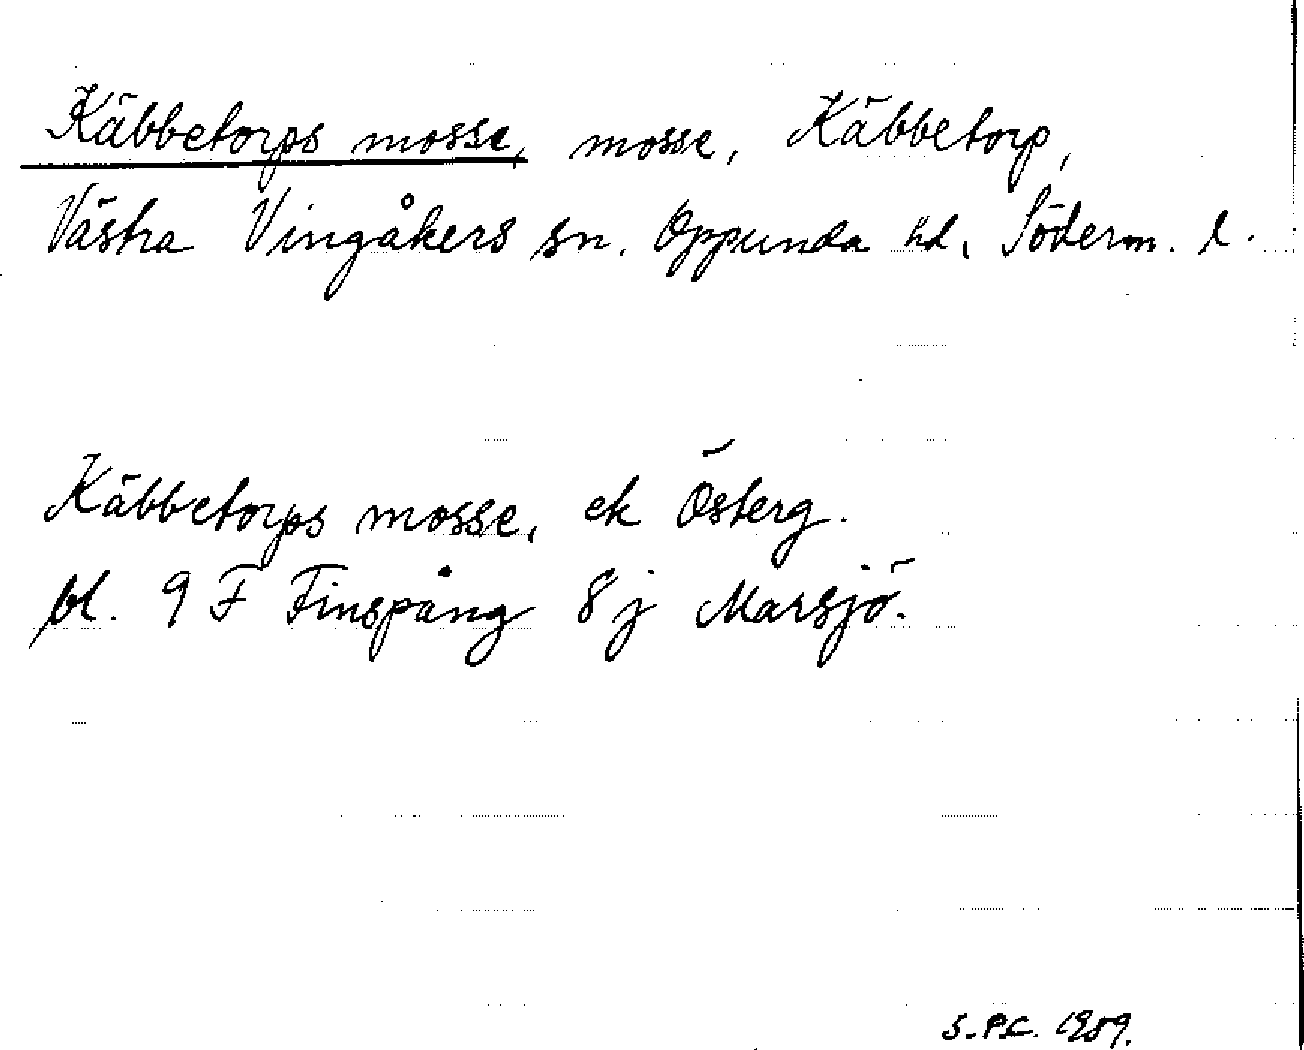 Käbbetorps mosse, mosse, Käbbetorp,
Västra Vingåkers sn. Oppunda hd, Söderm. l.
Käbbetorps mosse, ek Österg.
bl. 9 F Finspång 8 j Marsjö.
S.P.C. 1989.